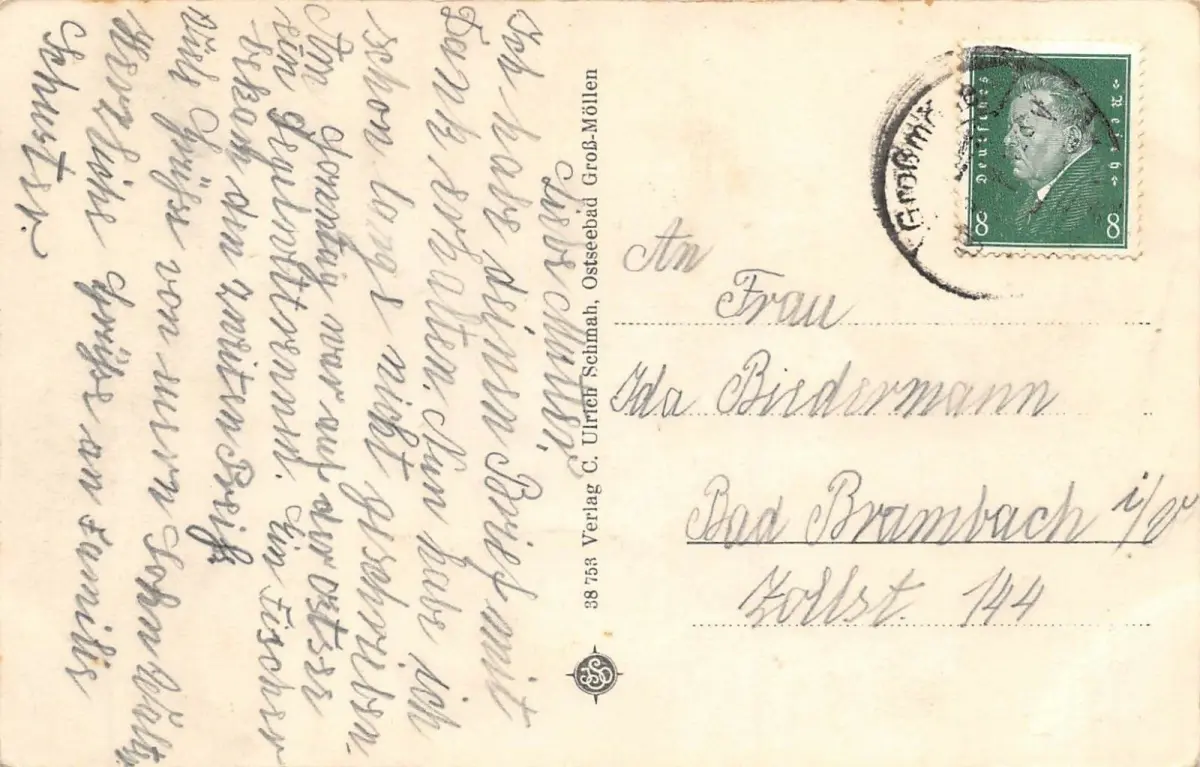 Liebe Mutter,
Ich habe deinen Brief mit
Dank erhalten. Nun habe ich
schon lange nicht geschrieben.
Am Sonntag war auf der ostsee
ein
bekam den zweiten Preis.
Viele Grüße von euern Sohn
Herzliche Grüße an Familie
Schuster.
38 753 Verlag C. Ulrich Schmah, Ostseebad Groß-Möllen
Deutsches Reich
8 8
An
Frau
Ida Biedermann
Bad Brambach i/V
Zollst. 144